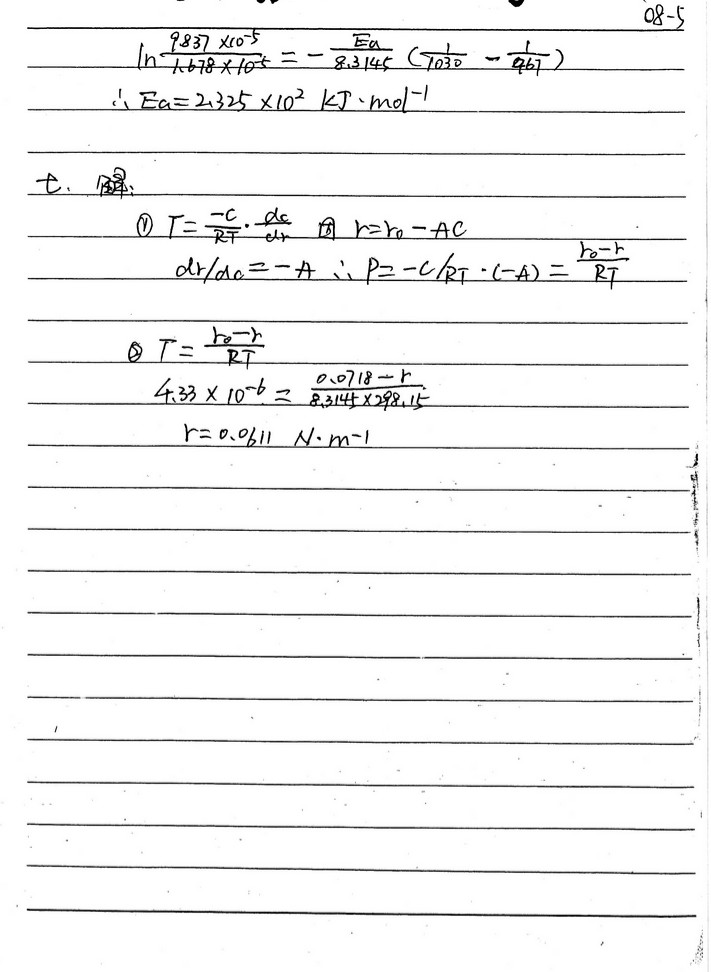 08-5
ln 9.837×10⁻⁵/1.678×10⁻⁵ = - Ea/8.3145 (1/1030 - 1/967)
∴ Ea=2.325×10² kJ·mol⁻¹
七. 解:
① T = -C/RT · dc/dr 由 r=r₀-AC
dr/dc=-A ∴ P=-C/RT·(-A) = r₀-r/RT
② T = r₀-r/RT
4.33×10⁻⁶ = 0.0718-r/8.3145×298.15
r=0.0611 N·m⁻¹